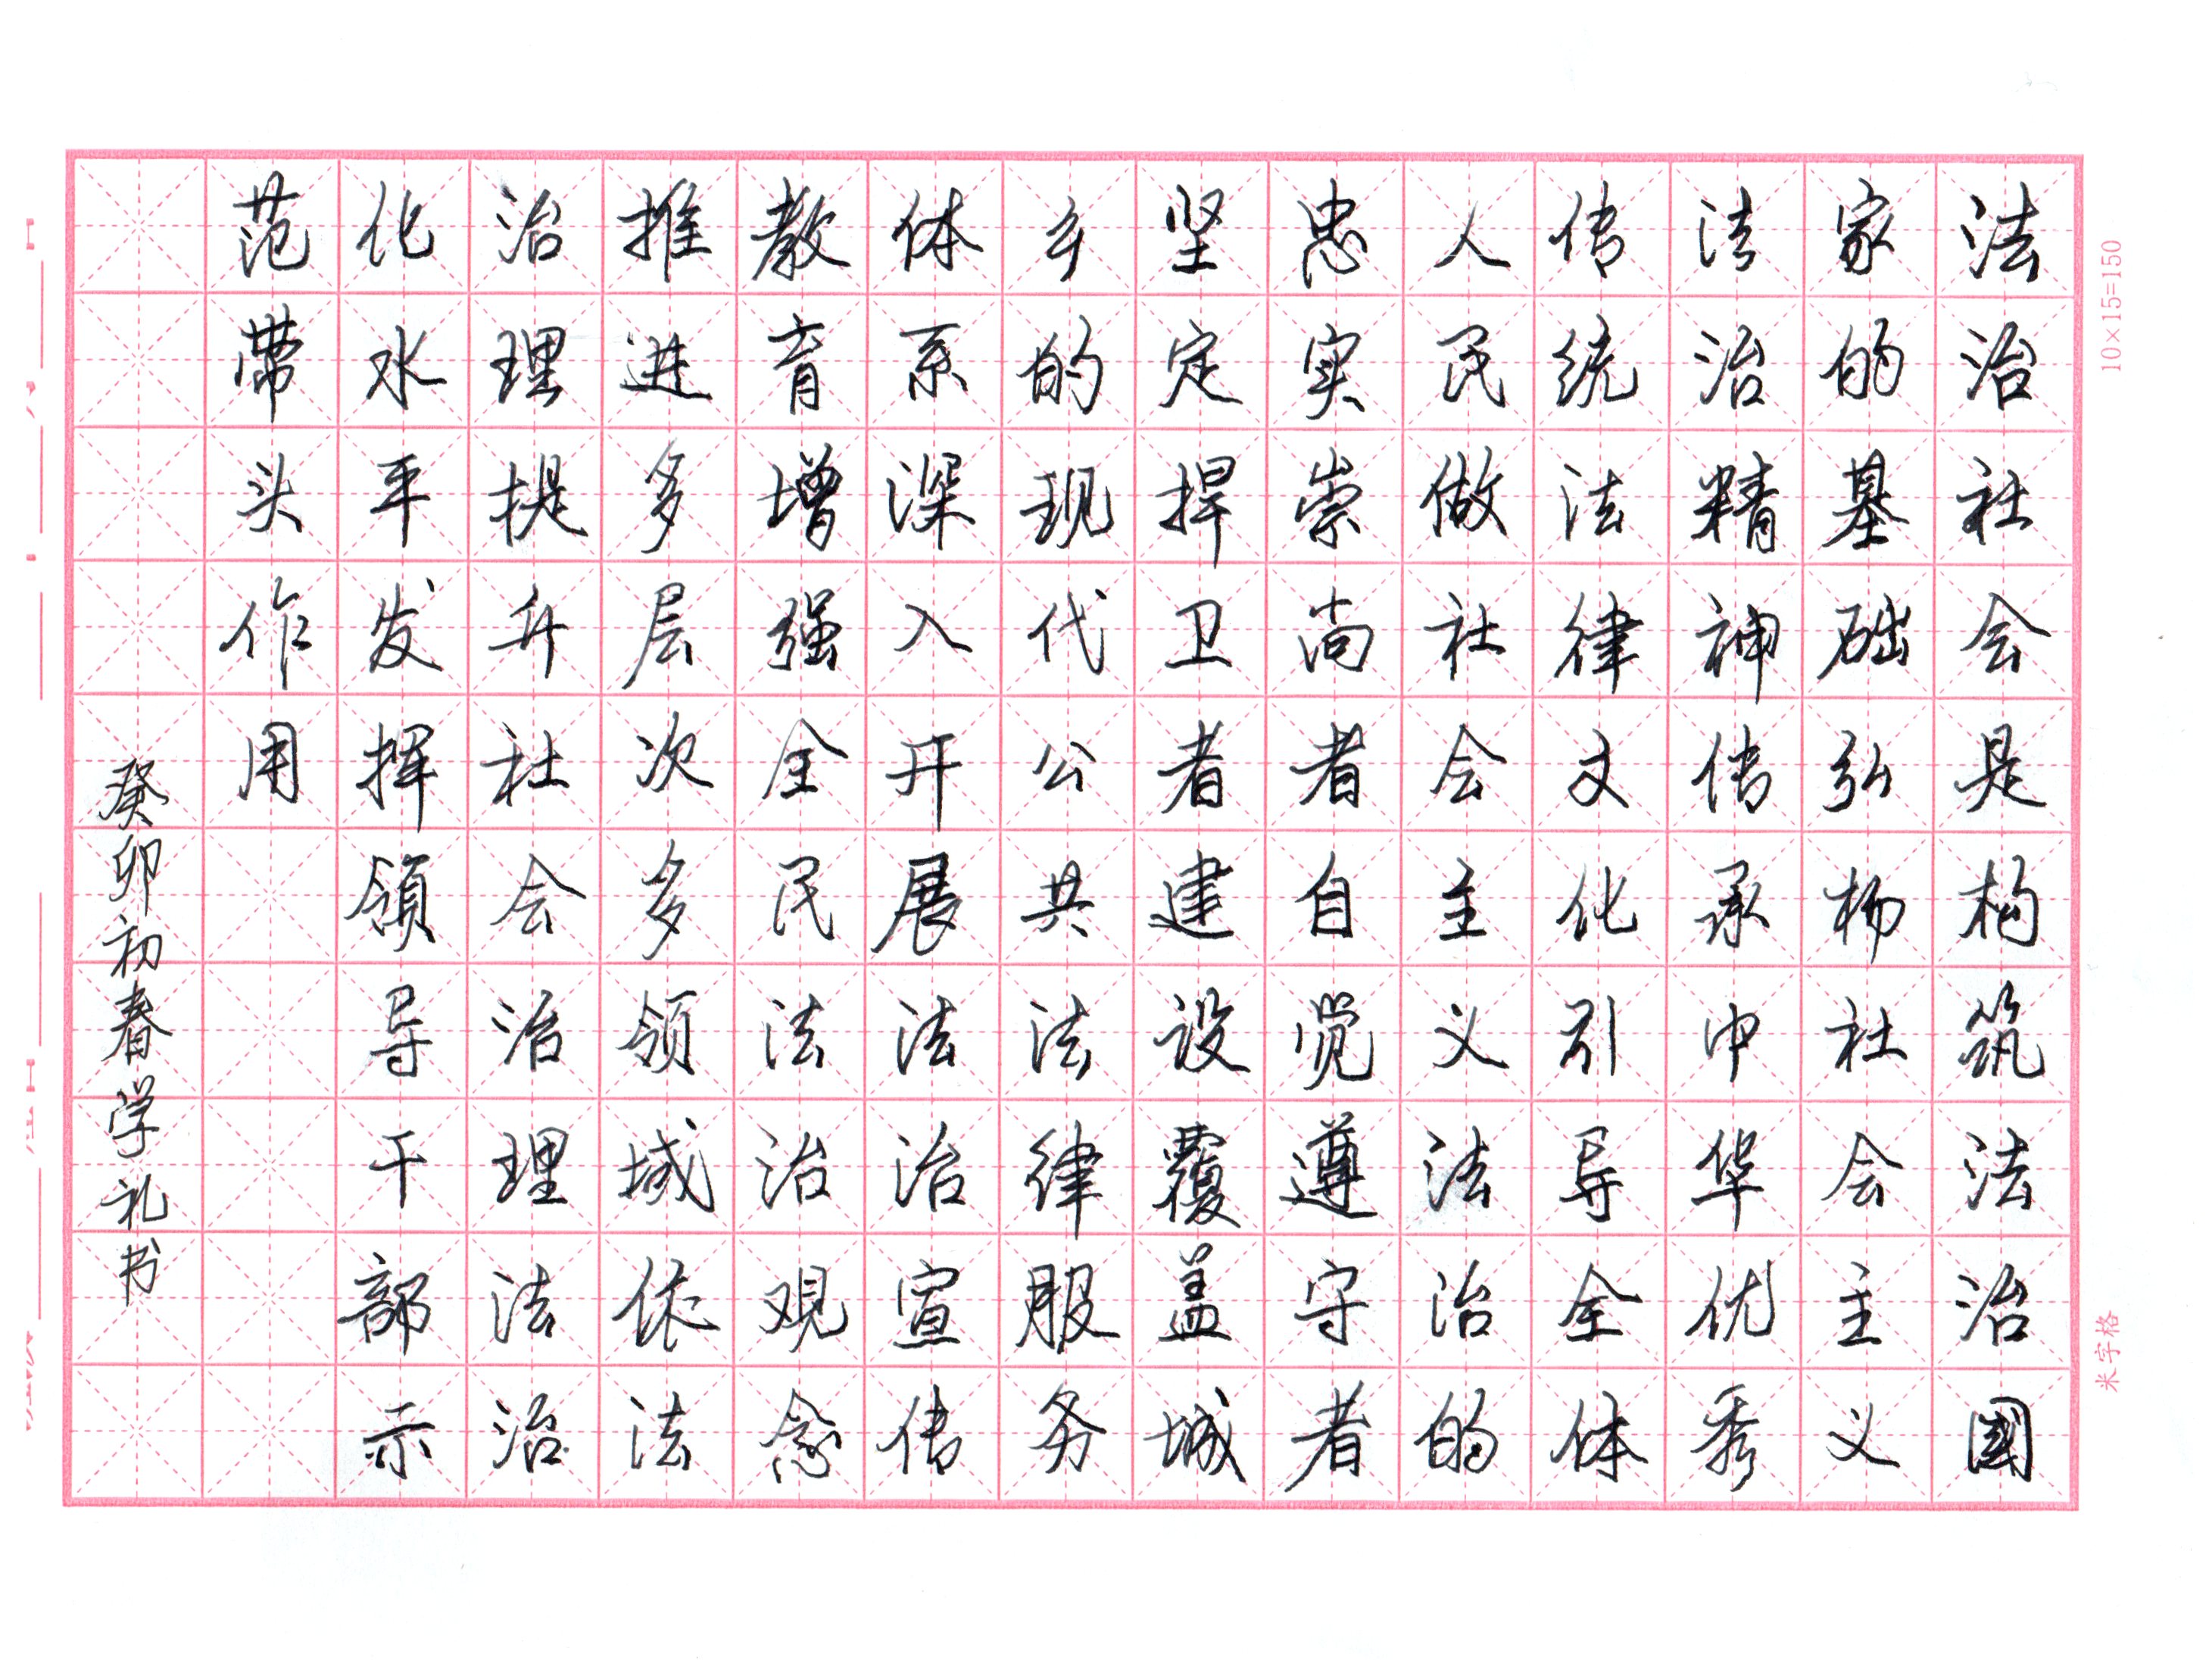 法治社会是构筑法治国
家的基础弘扬社会主义
法治精神传承中华优秀
传统法律文化引导全体
人民做社会主义法治的
忠实崇尚者自觉遵守者
坚定捍卫者建设覆盖城
乡的现代公共法律服务
体系深入开展法治宣传
教育增强全民法治观念
推进多层次多领域依法
治理提升社会治理法治
化水平发挥领导干部示
范带头作用
癸卯初春学礼书
10×15=150
米字格